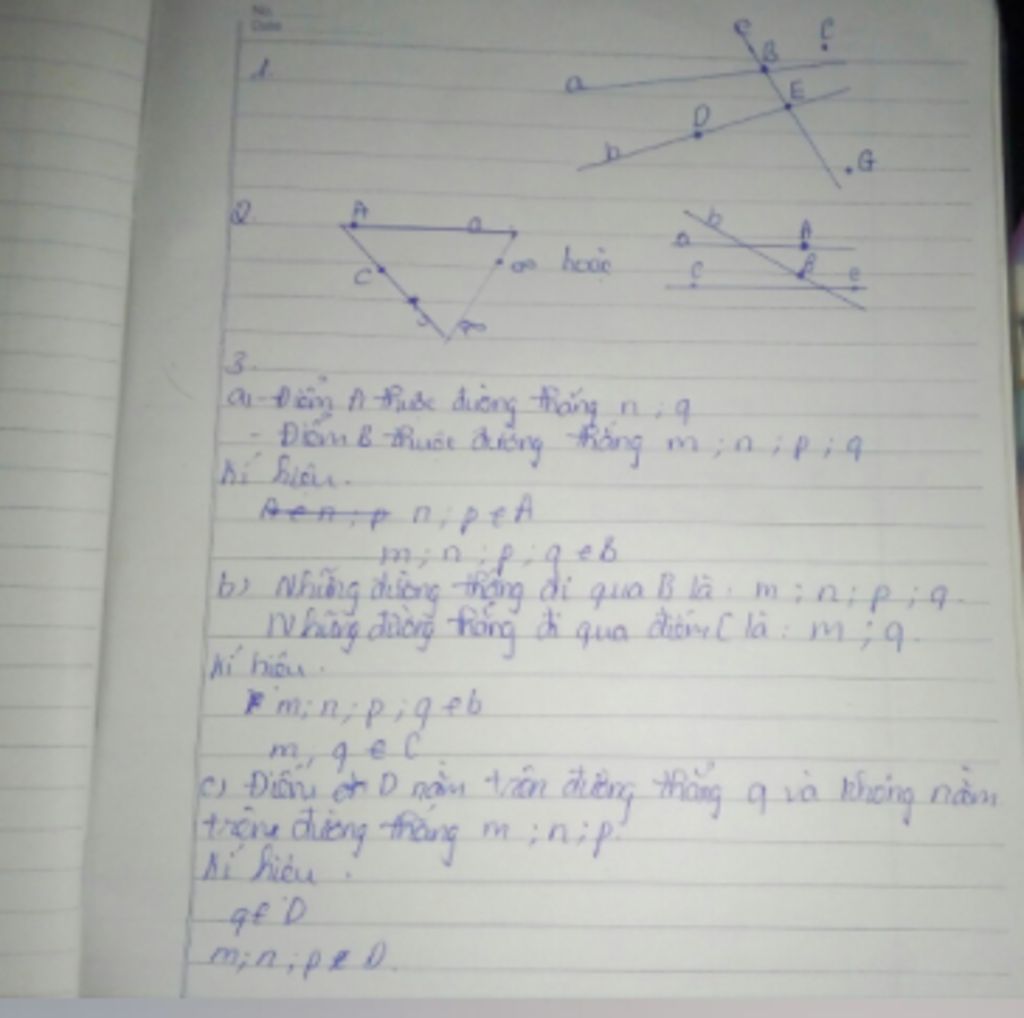 No.
Date
1.
a
B
C
b
D
E
G
2.
A
a
C
hoặc
b
a
A
B
C
e
3.
a) - Điểm A thuộc đường thẳng n ; q
- Điểm B thuộc đường thẳng m ; n ; p ; q
Kí hiệu.
n ; p ∈ A
m ; n ; p ; q ∈ B
b) Những đường thẳng đi qua B là : m ; n ; p ; q.
Những đường thẳng đi qua điểm C là : m ; q.
Kí hiệu.
m; n; p ; q ∈ b
m, q ∈ C
c) Điểm D nằm trên đường thẳng q và không nằm
trên đường thẳng m ; n ; p.
Kí hiệu.
q ∈ D
m; n ; p ∉ D.